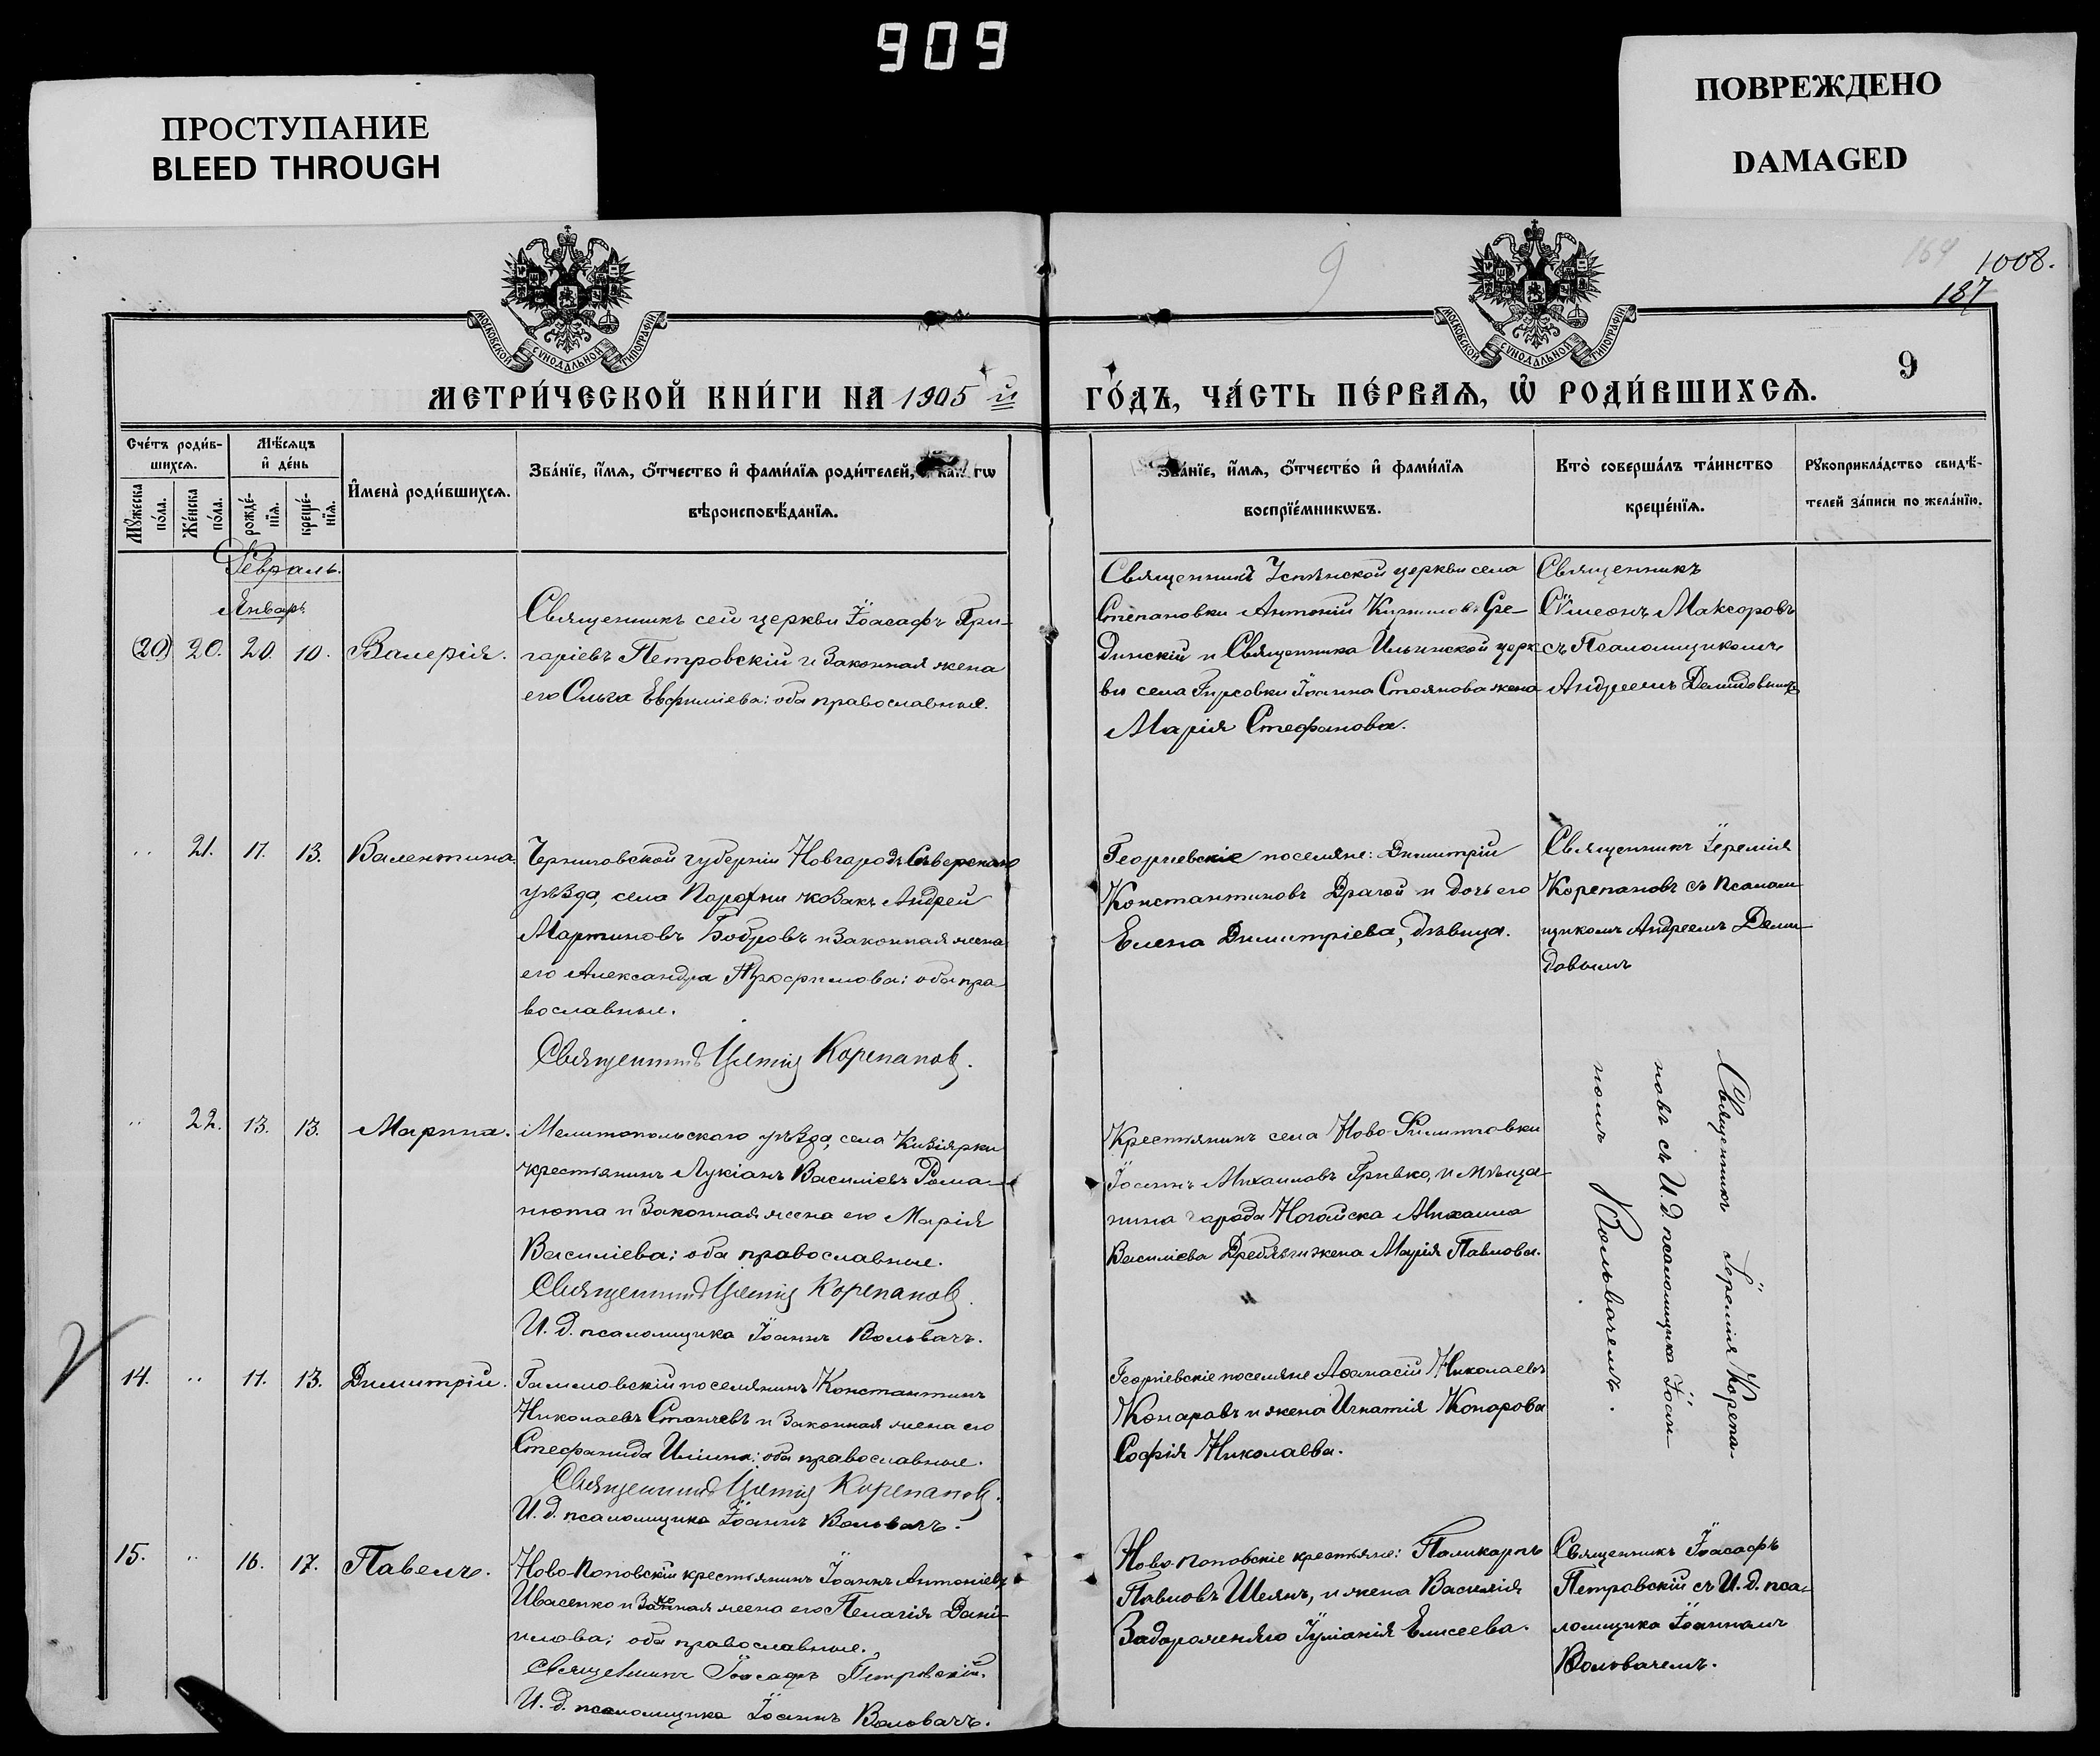 909
ПРОСТУПАНИЕ
BLEED THROUGH
ПОВРЕЖДЕНО
DAMAGED
9
164
1008.
187
МОСКОВСКОЙ СУНОДАЛЬНОЙ ТИПОГРАФІИ
МОСКОВСКОЙ СУНОДАЛЬНОЙ ТИПОГРАФІИ
9
МЕТРИ́ЧЕСКОЙ КНИ́ГИ НА 1905 й
ГО́ДЪ, ЧА́СТЬ ПЕ́РВАѦ, Ѽ РОДИ́ВШИХСѦ.
Сче́тъ роди́в-
шихсѧ.
Мѣ́сѧцъ
и҆ де́нь
Мꙋ́жеска по́ла.
Же́нска по́ла.
рожде́-
нїѧ.
креще́-
нїѧ.
И҆мена̀ роди́вшихсѧ.
Зва́нїе, и҆́мѧ, ѻ҆́тчество и҆ фами́лїѧ роди́телей,
вѣроисповѣ́данїѧ.
Зва́нїе, и҆́мѧ, ѻ҆́тчество и҆ фами́лїѧ
воспрїе́мникѡвъ.
Кто̀ соверша́лъ та́инство
креще́нїѧ.
Рꙋкоприкла́дство свидѣ́-
телей за́писи по жела́нїю.
Февраль.
Январь
(20) 20. 20. 10. Валерія.
Священникъ сей церкви Іоасафъ Гри-
горіевъ Петровскій и законная жена
его Ольга Евфиміева: оба православные.
Священникъ Успенской церкви села
Степановки Антоній Сре-
динскій и Священника Ильинской церк
ви села Гирсовки Іоанна Стоянова жена
Марія Стефанова.
Священникъ
Сѵмеонъ Максоровъ
съ Псаломщикомъ
Андреемъ Демидовымъ
" 21. 11. 13. Валентина.
Черниговской губерніи Новгородъ Сѣверскаго
уѣзда, села козакъ Андрей
Мартиновъ Бобровъ и законная жена
его Александра Трофимова: оба пра-
вославные.
Священникъ Іеремія Корепановъ.
Георгіевскіе поселяне: Димитрій
Константиновъ Драгой и дочь его
Елена Димитріева, дѣвица.
Священникъ Іеремія
Корепановъ съ псалом
щикомъ Андреемъ Деми-
довымъ
" 22. 13. 13. Марина.
Мелитопольскаго уѣзда, села Кизіярки
крестьянинъ Лукіанъ Василіевъ Рома-
нюта и законная жена его Марія
Василіева: оба православные.
Священникъ Іеремія Корепановъ.
И. д. псаломщика Іоаннъ Вольвачъ.
Крестьянинъ села Ново-Филиповки
Іоаннъ Михаиловъ Гривко, и мѣща-
нина города Ногайска Михаила
Василіева жена Марія Павлова.
Священникъ Іеремія Корепа
новъ съ И. д. псаломщика Іоан-
номъ Вольвачемъ.
14. " 11. 13. Димитрій.
поселянинъ Константинъ
Николаевъ Станчевъ и законная жена его
Стефанида Иліина: оба православные.
Священникъ Іеремія Корепановъ.
И. д. псаломщика Іоаннъ Вольвачъ.
Георгіевскіе поселяне Аѳанасій Николаевъ
Конаровъ и жена Игнатія Конарова
Софія Николаева.
15. " 16. 17. Павелъ.
Ново-Поповскій крестьянинъ Іоаннъ Антоніевъ
Ивасенко и законная жена его Пелагія Дані-
илова: оба православные.
Священникъ Іоасафъ Петровскій.
И. д. псаломщика Іоаннъ Вольвачъ.
Ново-Поповскіе крестьяне: Поликарпъ
Павловъ Шелянъ, и жена Василія
Задорожняго Іуліанія Елисеева.
Священникъ Іоасафъ
Петровскій съ И. д. пса-
ломщика Іоанномъ
Вольвачемъ.